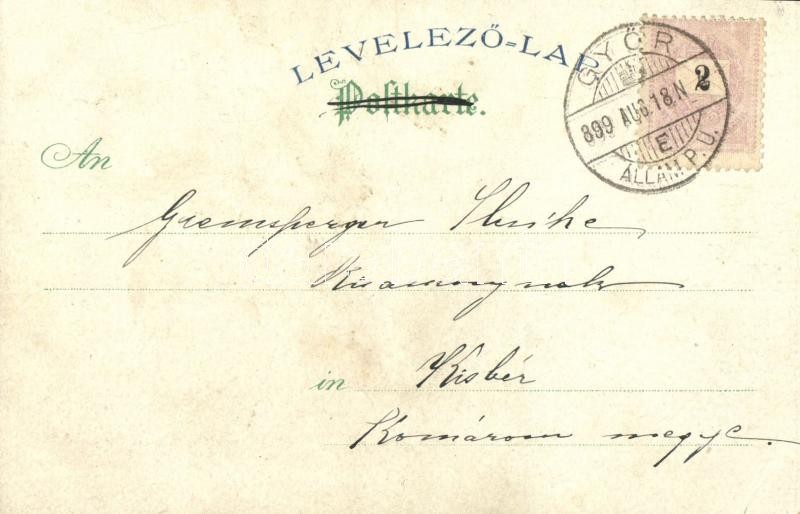 LEVELEZŐ=LAP
Postkarte.
GYŐR
2
899 AUG. 18. N
E
ÁLLAM. P. U.
An
Kisasszonynak
in Kisbér
Komárom megye.